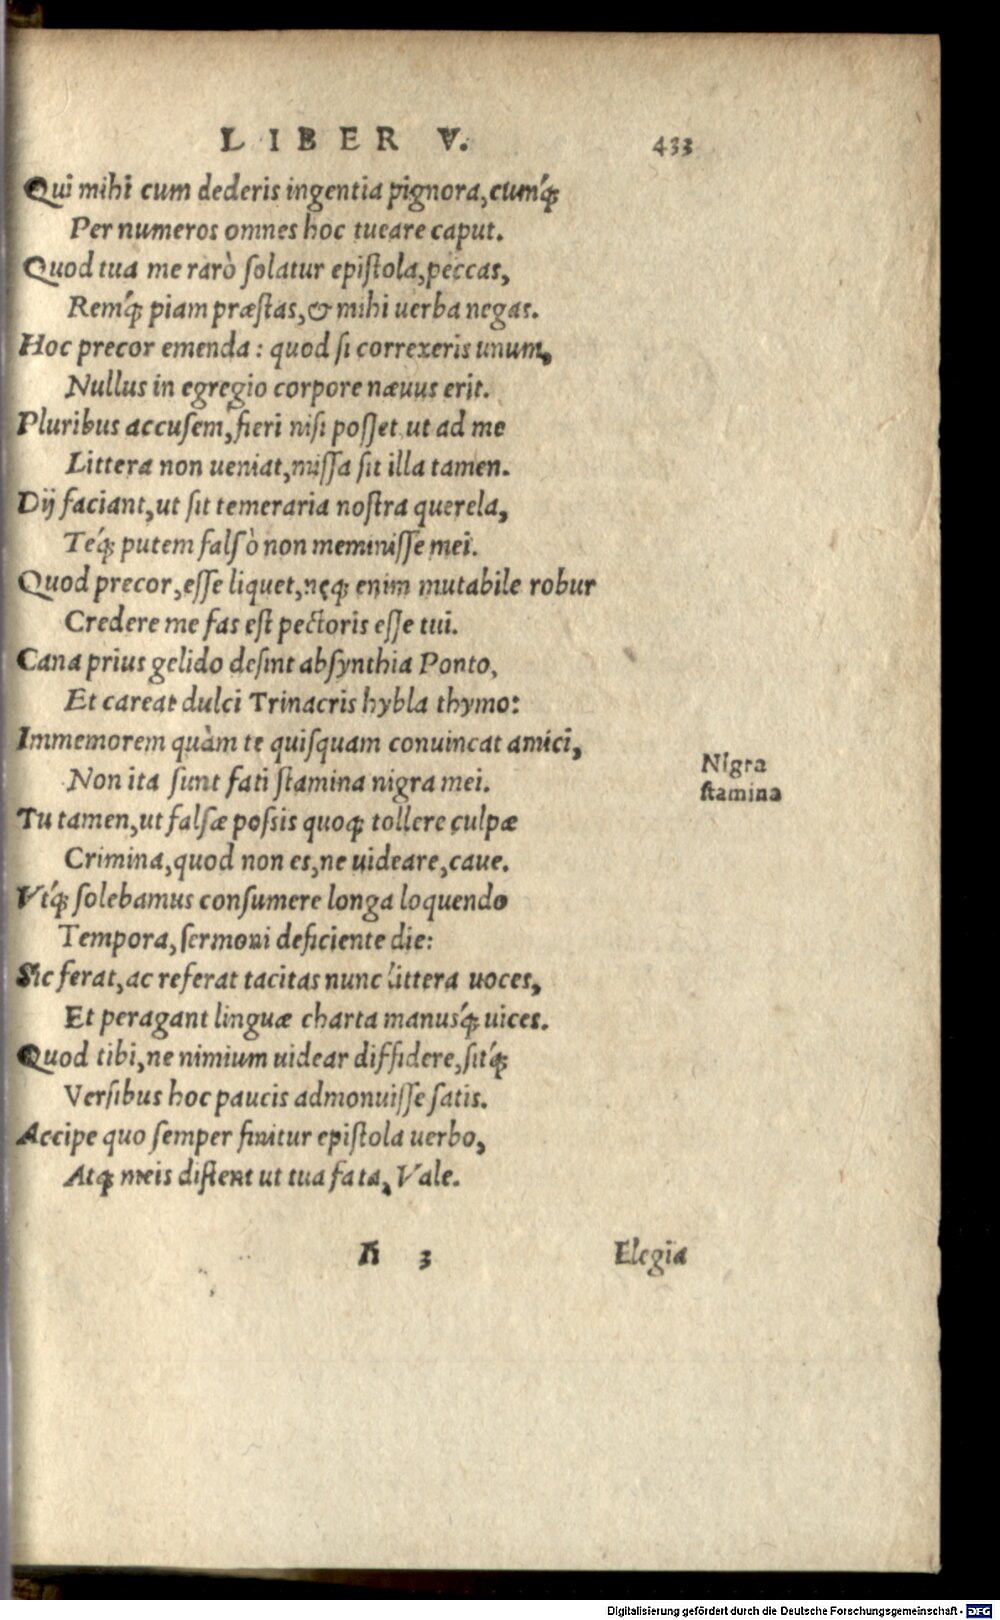 LIBER V. 433
Qui mihi cum dederis ingentia pignora, cumq́;
Per numeros omnes hoc tueare caput.
Quod tua me rarò solatur epistola, peccas,
Remq́; piam præstas, & mihi uerba negas.
Hoc precor emenda: quod si correxeris unum,
Nullus in egregio corpore næuus erit.
Pluribus accusem, fieri nisi posset ut ad me
Littera non ueniat, missa sit illa tamen.
Dij faciant, ut sit temeraria nostra querela,
Teq́; putem falsò non meminisse mei.
Quod precor, esse liquet, neq; enim mutabile robur
Credere me fas est pectoris esse tui.
Cana prius gelido desint absynthia Ponto,
Et careat dulci Trinacris hybla thymo:
Immemorem quàm te quisquam conuincat amici,
Non ita sunt fati stamina nigra mei.
Nigra
stamina
Tu tamen, ut falsæ possis quoq; tollere culpæ
Crimina, quod non es, ne uideare, caue.
Vtq́; solebamus consumere longa loquendo
Tempora, sermoni deficiente die:
Sic ferat, ac referat tacitas nunc littera uoces,
Et peragant linguæ charta manusq́; uices.
Quod tibi, ne nimium uidear diffidere, sitq́;
Versibus hoc paucis admonuisse satis.
Accipe quo semper finitur epistola uerbo,
Atq; meis distent ut tua fata, Vale.
h 3 Elegia
Digitalisierung gefördert durch die Deutsche Forschungsgemeinschaft - DFG